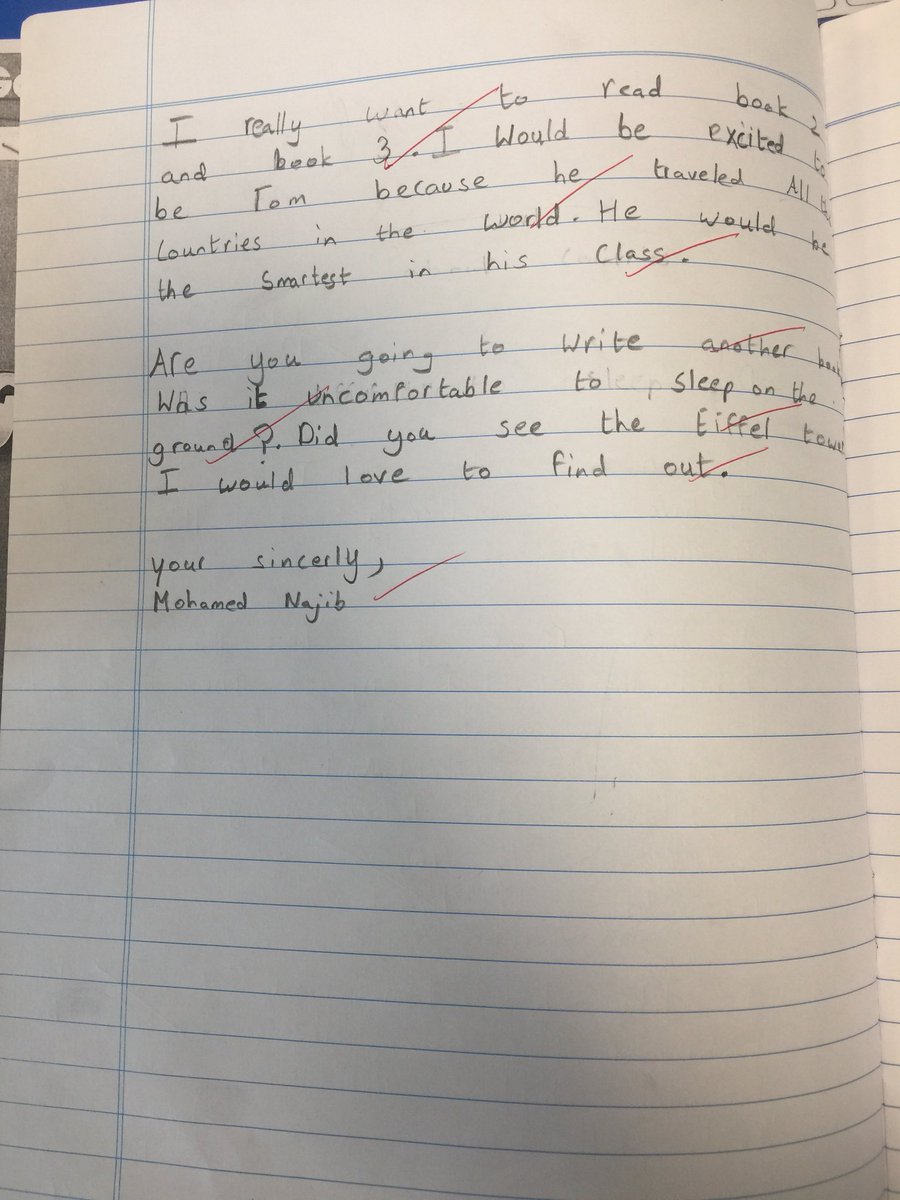 I really want to read book 2
and book 3. I Would be excited to
be Tom because he traveled All
Countries in the world. He would be
the Smartest in his Class.
Are you going to write another book
Was it uncomfortable to sleep on the
ground?. Did you see the Eiffel
I would love to find out.
your sincerly,
Mohamed Najib